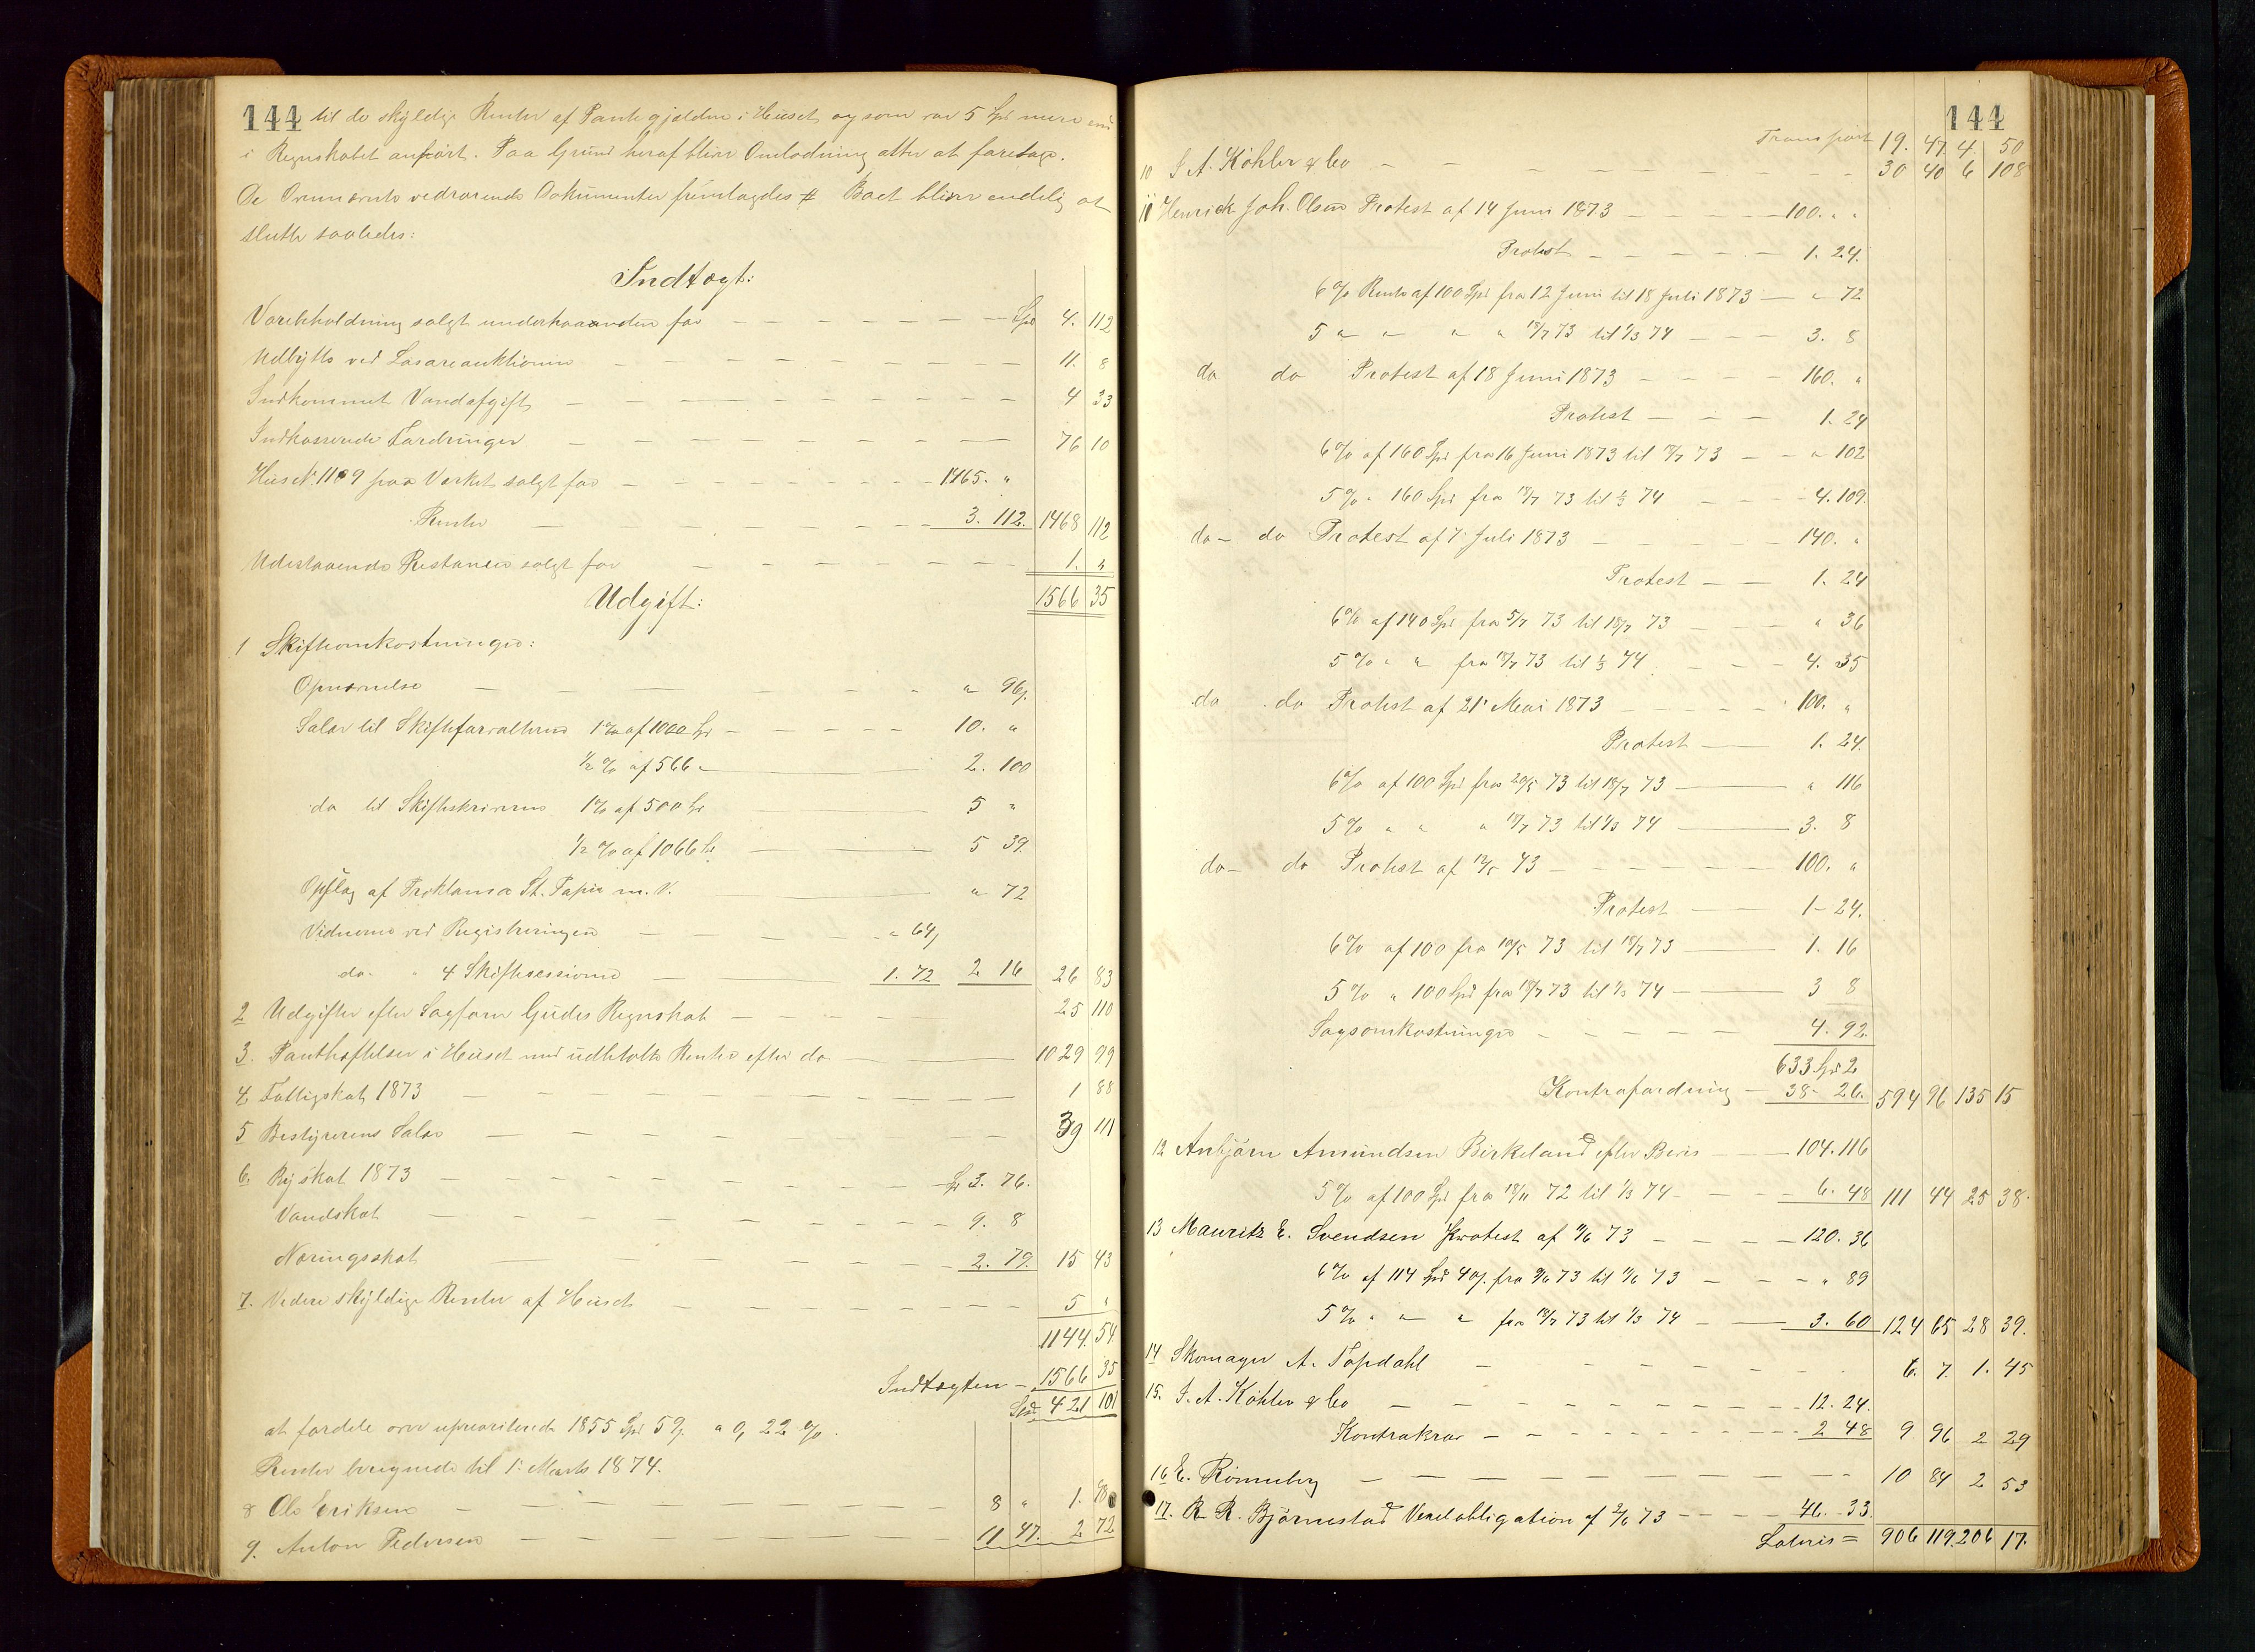 144 til de skyldige Renter af Pantegjælden i Huset og som var 5 Spd mere end
i Regnskabet anført. Paa Grund heraf bliver Omlodning atter at foretage.
De Ommeldte vedrørende Dokumenter fremlagdes # Boet bliver endelig at
slutte saaledes:
Indtægt:
Varebeholdning solgt underhaanden for — Spd 4. 112
Udbytte ved Løsøreauktionen — 11. 8
Indkommet Vandafgift — 4 33
Indkasserede Fordringer — 76 10
Hus N. 1109 paa Verket solgt for — 1465. "
Renter — 3. 112. 1468 112
Udestaaende Restancer solgt for — 1. "
1566 35
Udgift:
1 Skifteomkostninger:
Opnævnelse — " 96.
Salær til Skifteforvalteren 1% af 1000 Spd — 10. "
½ % af 566 " — 2. 100
do til Skifteskriveren 1% af 500 Spd — 5 "
½ % af 1066 Spd — 5 39.
Opslag af Proklama St. Papir m. V. — " 72
Vidnerne ved Registreringen — " 64,
do " 4 Skiftesessioner — 1. 72 2 16 26 83
2 Udgifter efter Sagfører Gudes Regnskab — 25 110
3. Pantheftelser i Huset med udbetalte Renter efter do — 1029 99
4 Fattigskat 1873 — 1 88
5 Bestyrerens Salær — 39 111
6. Byskat 1873 — Sp 3. 76.
Vandskat — 9. 8
Næringsskat — 2. 79. 15 43
7. Videre skyldige Renter af Huset — 5 "
1144. 54
Indtægten — 1566 35
Spd 421 101
at fordele over uprioriterede 1855 Spd 59. " 0, 22 %.
Renter beregnede til 1: Marts 1874.
8 Ole Eriksen — 8 " 1. 98
9. Anton Pedersen — 11 47. 2 72
144
Transport 19. 47. 4. 50
10 J. A. Köhler & Co — 30 40 6 108
11 Henrick Joh. Olsen Protest af 14 Juni 1873 — 100. "
Protest — 1. 24.
6% Rente af 100 Spd fra 12 Juni til 18 Juli 1873 — " 72
5 " " " " 18/7 73 til 1/3 74 — 3. 8
do do Protest af 18 Juni 1873 — 160. "
Protest — 1. 24
6% af 160 Spd fra 16 Juni 1873 til 18/7 73 — " 102
5% " 160 Spd fra 18/7 73 til 1/3 74 — 4. 109.
do — do Protest af 7 Juli 1873 — 140. "
Protest — 1. 24
6% af 140 Spd fra 5/7 73 til 18/7 73 — " 36
5% " " fra 18/7 73 til 1/3 74 — 4. 35
do do Protest af 21 Mai 1873 — 100. "
Protest — 1. 24.
6% af 100 Spd fra 20/5 73 til 18/7 73 — " 116
5% " " " 18/7 73 til 1/3 74 — 3. 8
do — do Protest af 12/5 73 — 100. "
Protest — 1 - 24.
6% af 100 fra 10/5 73 til 18/7 73 — 1. 16
5% " 100 Spd fra 18/7 73 til 1/3 74 — 3 8
Sagsomkostninger — 4. 92.
633 Spd 2
Kontrafordring — 38 - 26. 594 96 135 15
12 Anbjørn Amundsen Birkeland efter Bevis — 104. 116
5% af 100 Spd fra 18/11 72 til 1/3 74 — 6. 48 111 44 25 38.
13 Mauritz E. Svendsen Protest af 11/6 73 — 120. 36
6% af 114 Spd 40. fra 9/6 73 til 11/6 73 — " 89
5% " " " fra 18/7 73 til 1/3 74 — 3. 60 124 65 28 39.
14 Skomager A. Topdahl — 6. 7. 1. 45
15. J. A. Köhler & Co — 12. 24.
Kontrakrav — 2 48 9 96 2 29
16 E. Rönneberg — 10 84 2 53
17. R. R. Björnestad Vexelobligation af 2/6 73 — 46. 33.
Lateris = 906 119. 206 17.